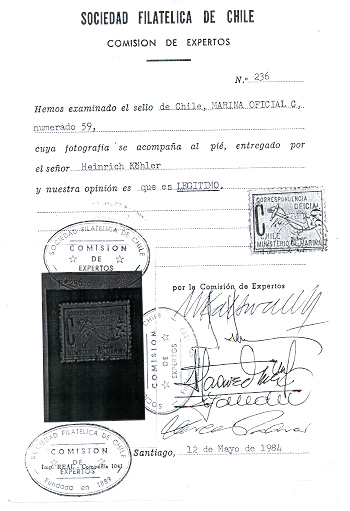 SOCIEDAD FILATELICA DE CHILE
COMISION DE EXPERTOS
N.º 236
Hemos examinado el sello de Chile, MARINA OFICIAL C,
numerado 59,
cuya fotografía se acompaña al pié, entregado por
el señor Heinrich Köhler
y nuestra opinión es que es LEGITIMO.
CORRESPONDENCIA
OFICIAL
C
CHILE
MINISTERIO DE MARINA
SOCIEDAD FILATELICA DE CHILE
COMISION
DE
EXPERTOS
por la Comisión de Expertos
COMISION
DE
EXPERTOS
SOCIEDAD FILATELICA DE CHILE
COMISION
DE
EXPERTOS
Fundada en 1889
Imp. REAL - Compañía 1041
Santiago, 12 de Mayo de 1984